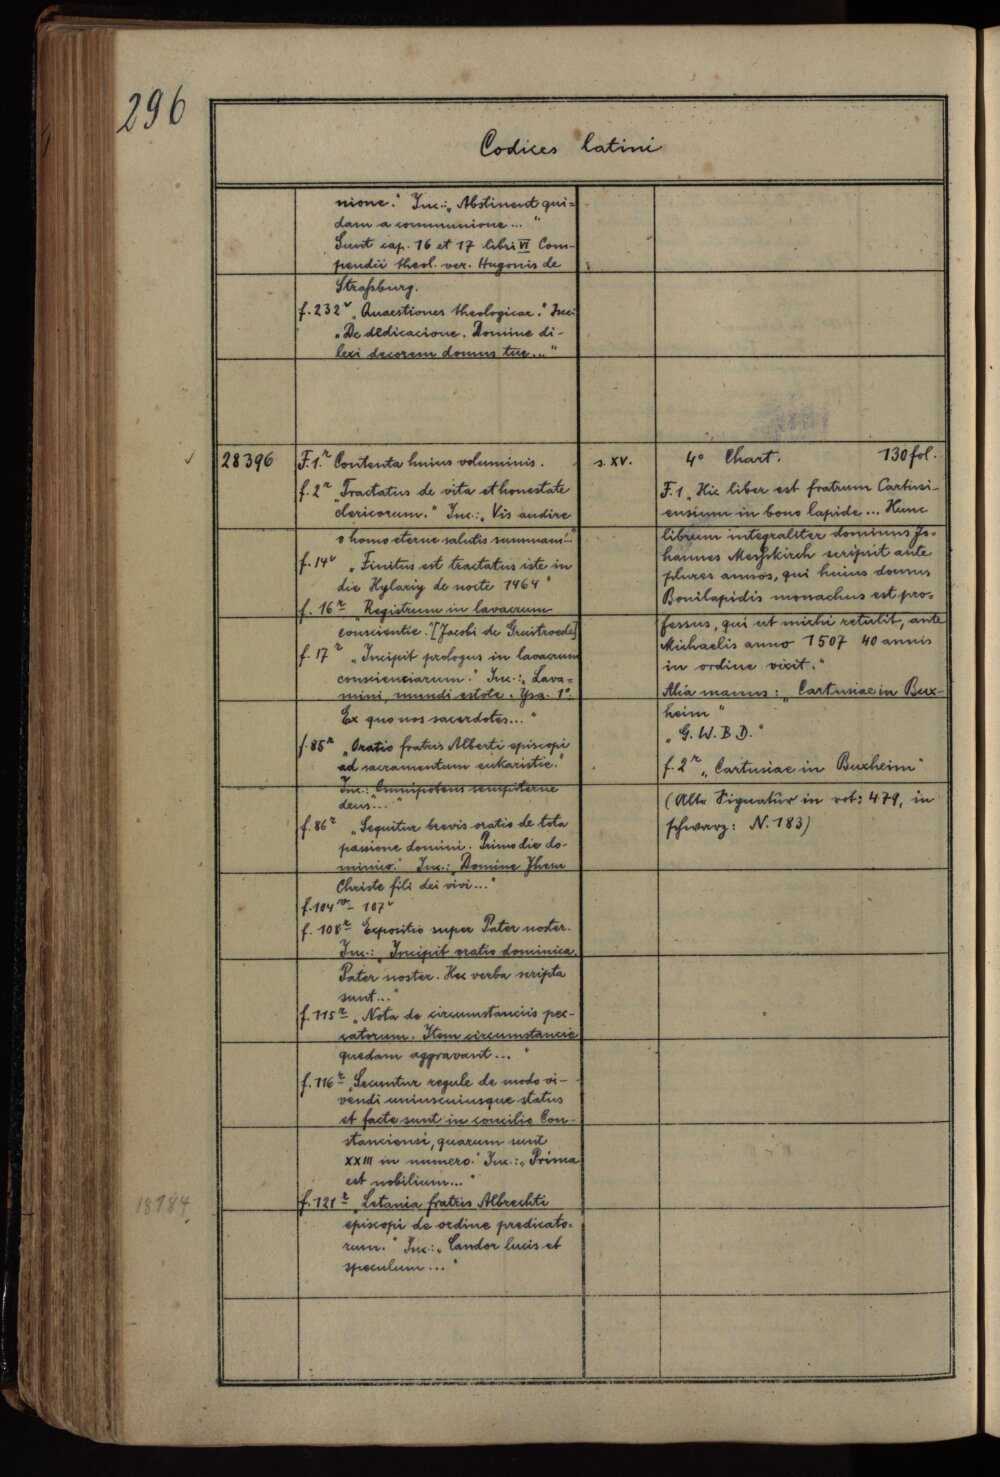 296
Codices latini
nione." Inc.: „Abstinent qui=
dam a communione..."
Sunt cap. 16 et 17 libri VI Com-
pendii theol. ver. Hugonis de
Straßburg.
f. 232v „Quaestiones theologicae." Inc.:
„De dedicacione. Domine di-
lexi decorem domus tue..."
✓ 28396
F. 1.r Contenta huius voluminis.
f. 2r „Tractatus de vita et honestate
clericorum." Inc.: „Vis audire
o homo eterne salutis summam..."
f. 14v „Finitus est tractatus iste in
die Hylariy de nocte 1464"
f. 16r „Registrum in lavacrum
conscientie." [Jacobi de Gruitroede]
f. 17r „Incipit prologus in lavacrum
conscienciarum." Inc.: „Lava-
mini, mundi estote. Ysa. 1o.
Ex quo nos sacerdotes..."
f. 85r „Oratio fratris Alberti episcopi
ad sacramentum eukaristie."
Inc.: „Omnipotens sempiterne
deus..."
f. 86r „Sequitur brevis oratio de tota
passione domini. Primo die do-
minico." Inc.: „Domine Jhesu
Christe fili dei vivi..."
f. 104v - 107v
f. 108r Expositio super Pater noster.
Inc.: „Incipit oratio dominica.
Pater noster. Hec verba scripta
sunt..."
f. 115r „Nota de circumstanciis pec-
catorum. Item circumstancie
quedam aggravant..."
f. 116r „Secuntur regule de modo vi-
vendi uniuscuiusque status
et facte sunt in concilio Con-
stanciensi, quarum sunt
XXIII in numero." Inc.: „Prima
est nobilium..."
f. 121r „Letania fratris Albrechti
episcopi de ordine predicato=
rum." Inc.: „Candor lucis et
speculum..."
s. XV.
4o Chart. 130 fol.
F. 1 „Hic liber est fratrum Cartusi-
ensium in bono lapide... Hunc
librum integraliter dominus Jo=
hannes Messkirch scripsit ante
plures annos, qui huius domus
Bonilapidis monachus est pro=
fessus, qui ut michi retulit, ante
Michaelis anno 1507 40 annis
in ordine vixit."
Alia manus: „Cartusiae in Bux-
heim"
„G. W. B. D."
f. 2r „Cartusiae in Buxheim"
(Alte Signatur in rot: 479, in
schwarz: N. 183)
18784